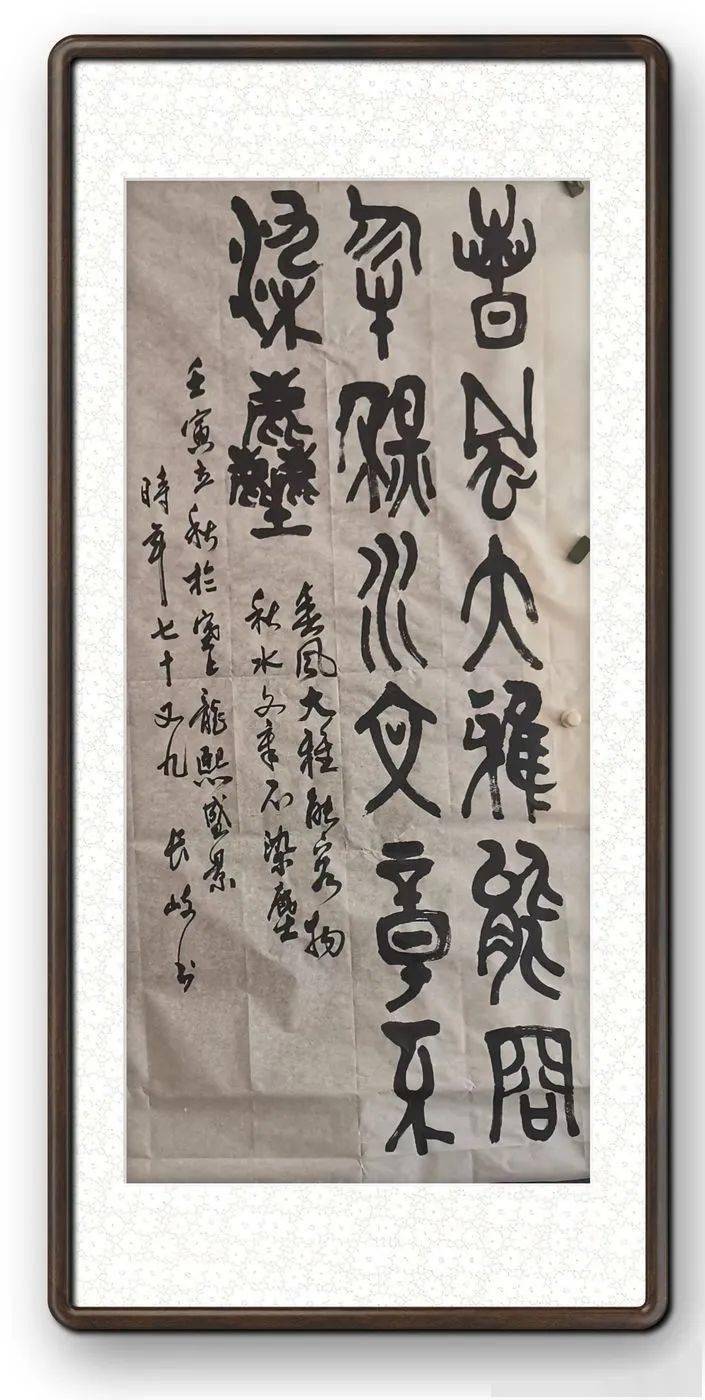 春風大雅能容
物秋水文章不
染塵
春風大雅能容物
秋水文章不染塵
壬寅立秋於塞上龍熙盛景
時年七十又九 長岐书